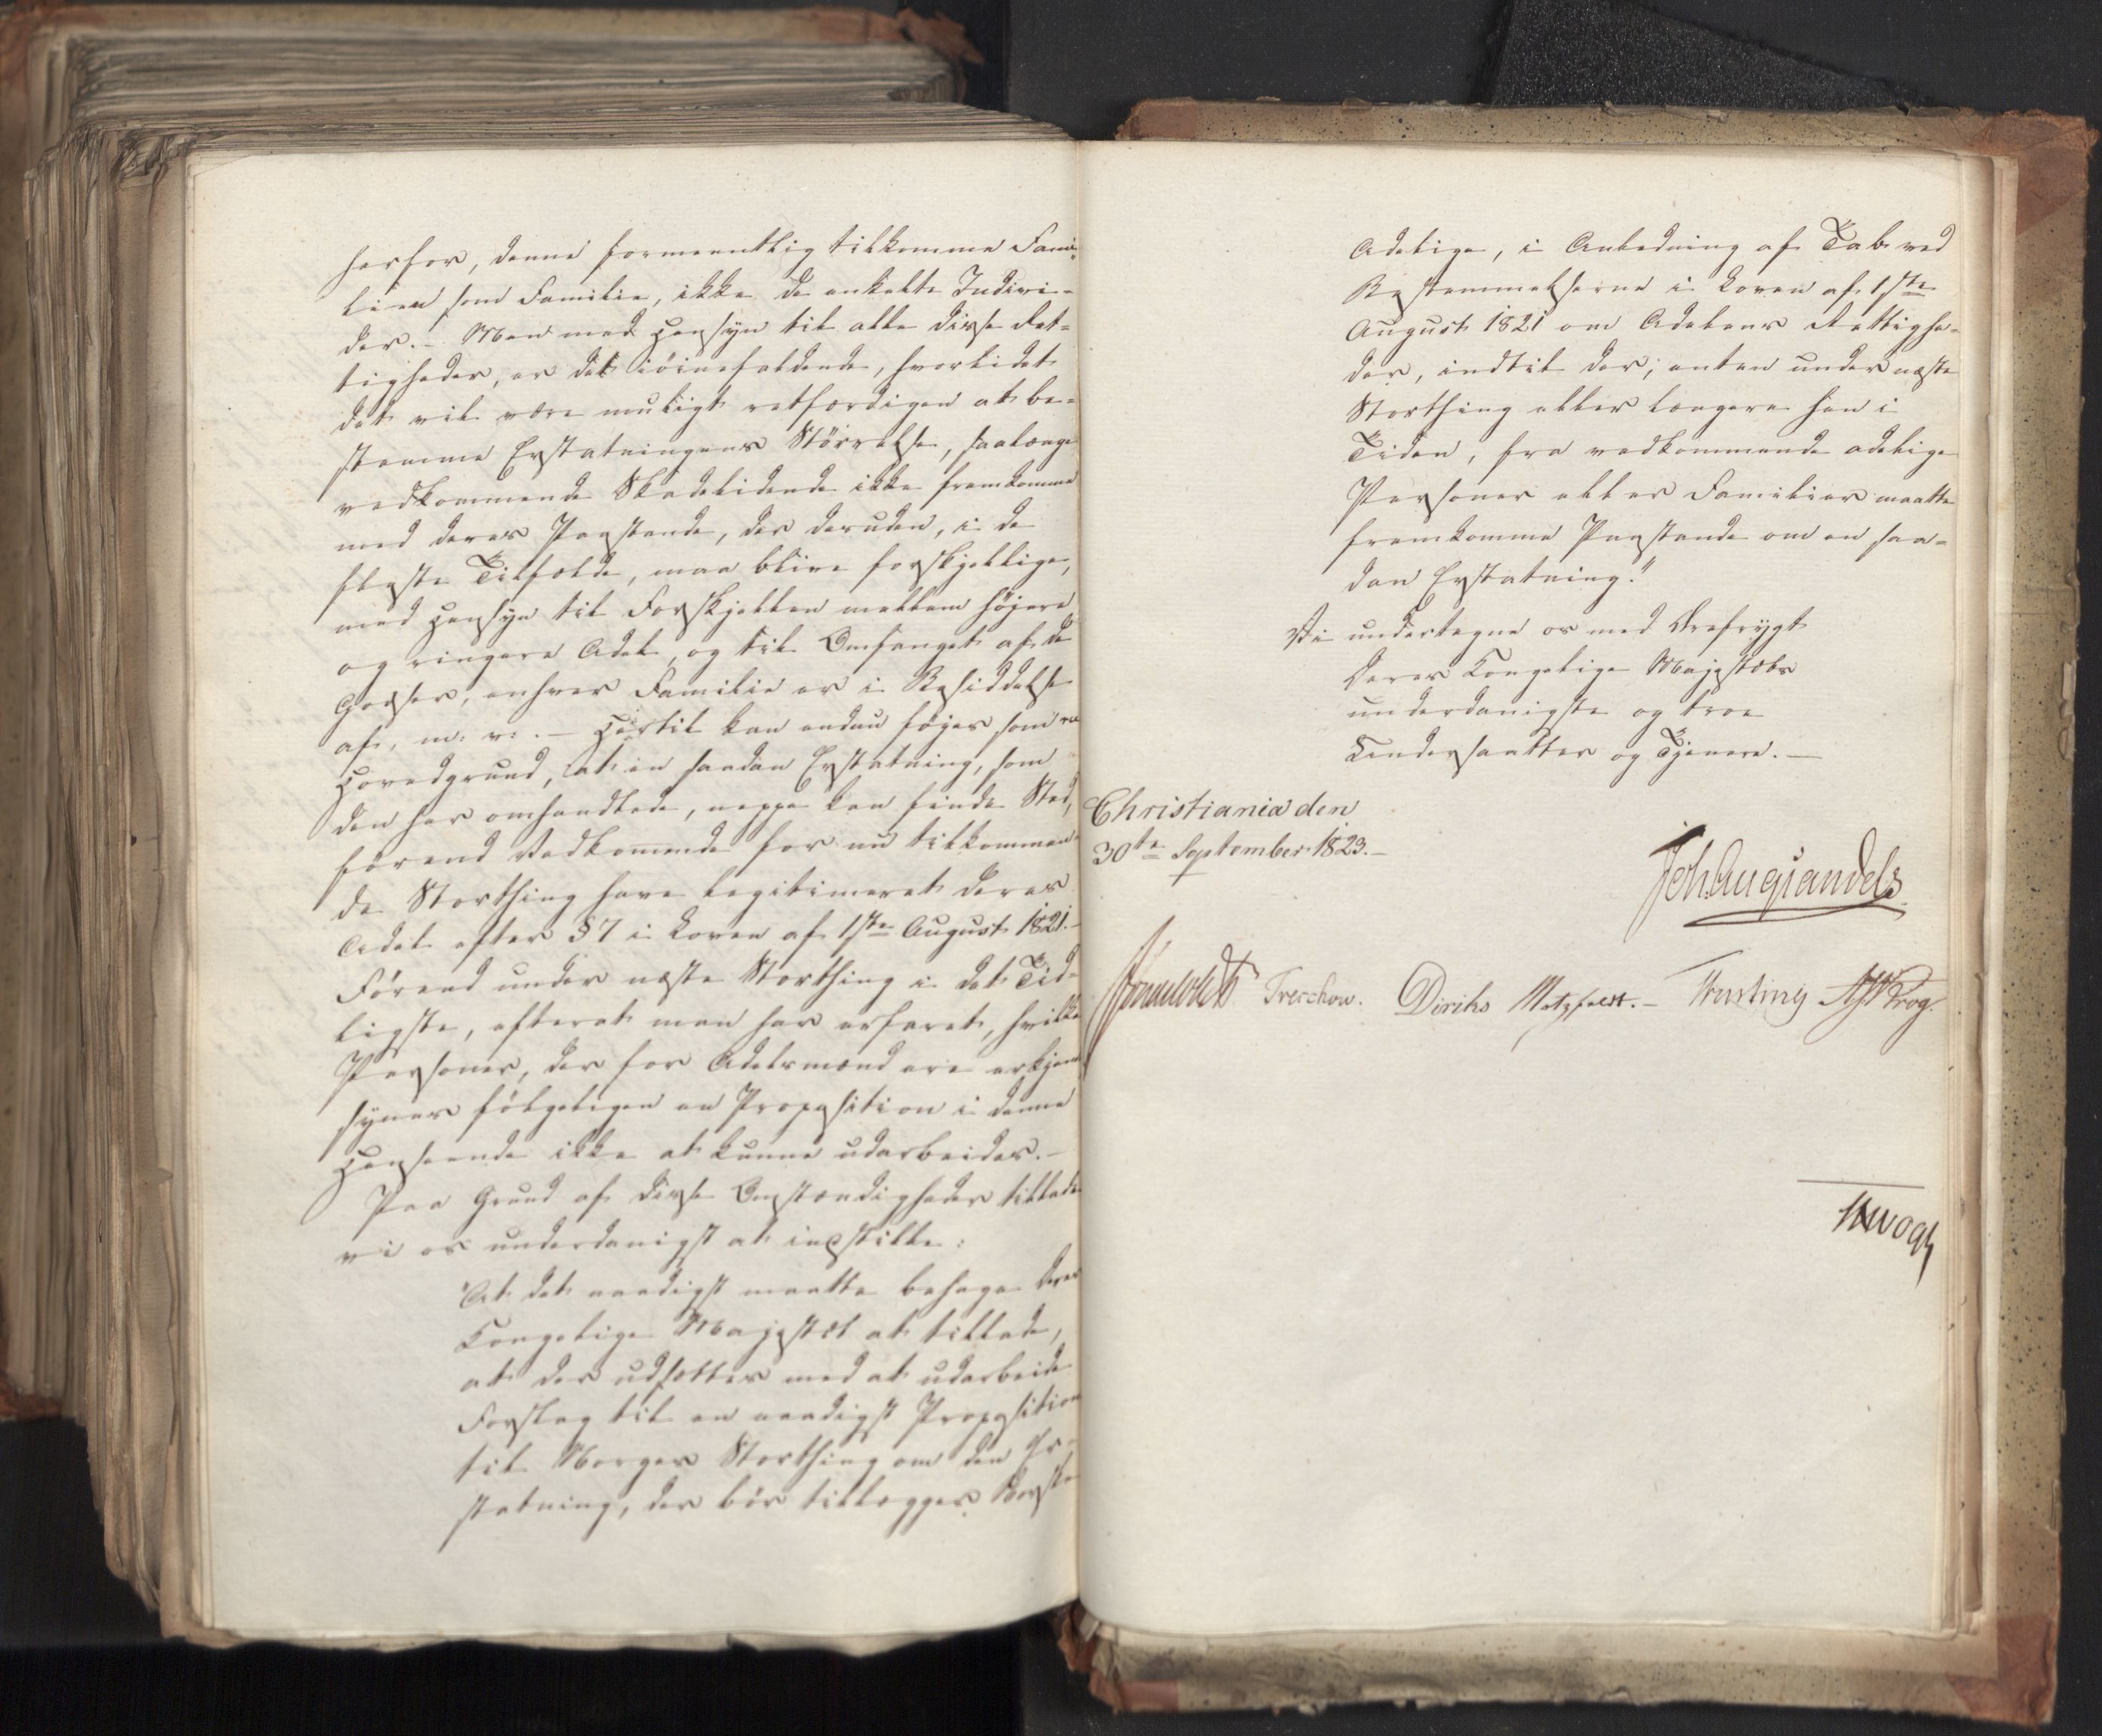 herfor, denne formeentlig tilkomme Fami-
lien som Familie, ikke de enkelte Indivi-
der. - Men med Hensyn til alle disse Ret-
tigheder, er det iöinefaldende, hvorlidet
det vil være muligt retfærdigen at be-
stemme Erstatningens Störrelse, saalænge
vedkommende Skadelidende ikke fremkomme
med deres Paastande, der desuden, i de
fleste Tilfælde, maa blive forskjellige,
med Hensyn til Forskjellen mellem höjere
og ringere Adel, og til Omfanget af de
Godser, enhver Familie er i Besiddelse
af, m: v: . - Hertil kan endnu föjes som en
Hovedgrund, at en saadan Erstatning, som
den her omhandlede, neppe kan finde Sted,
förend Vedkommende for nu tilkommen-
de Storthing have legitimeret deres
Adel efter § 7 i Loven af 1ste August 1821. -
Förend under næste Storthing i det Tid-
ligste, efterat man har erfaret, hvilke
Personer, der for Adelsmænd ere erkjendte
synes fölgeligen en Proposition i denne
Henseende ikke at kunne udarbeides. -
Paa Grund af disse Omstændigheder tillade
vi os underdanigst at indstille:
"At det naadigst maatte behage Deres
Kongelige Majestæt at tillade,
at der udsættes med at udarbeide
Forslag til en naadigst Proposition
til Norges Storthing om den Er-
statning, der bör tillægges Norske
Adelige, i Anledning af Tab ved
Bestemmelserne i Loven af 1ste
August 1821 om Adelens Rettighe-
der, indtil der, enten under næste
Storthing eller længere hen i
Tiden, fra vedkommende adelige
Personer eller Familier maatte
fremkomme Paastande om en saa-
dan Erstatning."
Vi undertegne os med Ærefrygt
Deres Kongelige Majestæts
underdanigste og troe
Undersaatter og Tjenere. -
Christiania den
30te September 1823. -
Joh Aug Sandels
Sommerhielm Treschow. Diriks Motzfeldt. - Krog.
Vogt